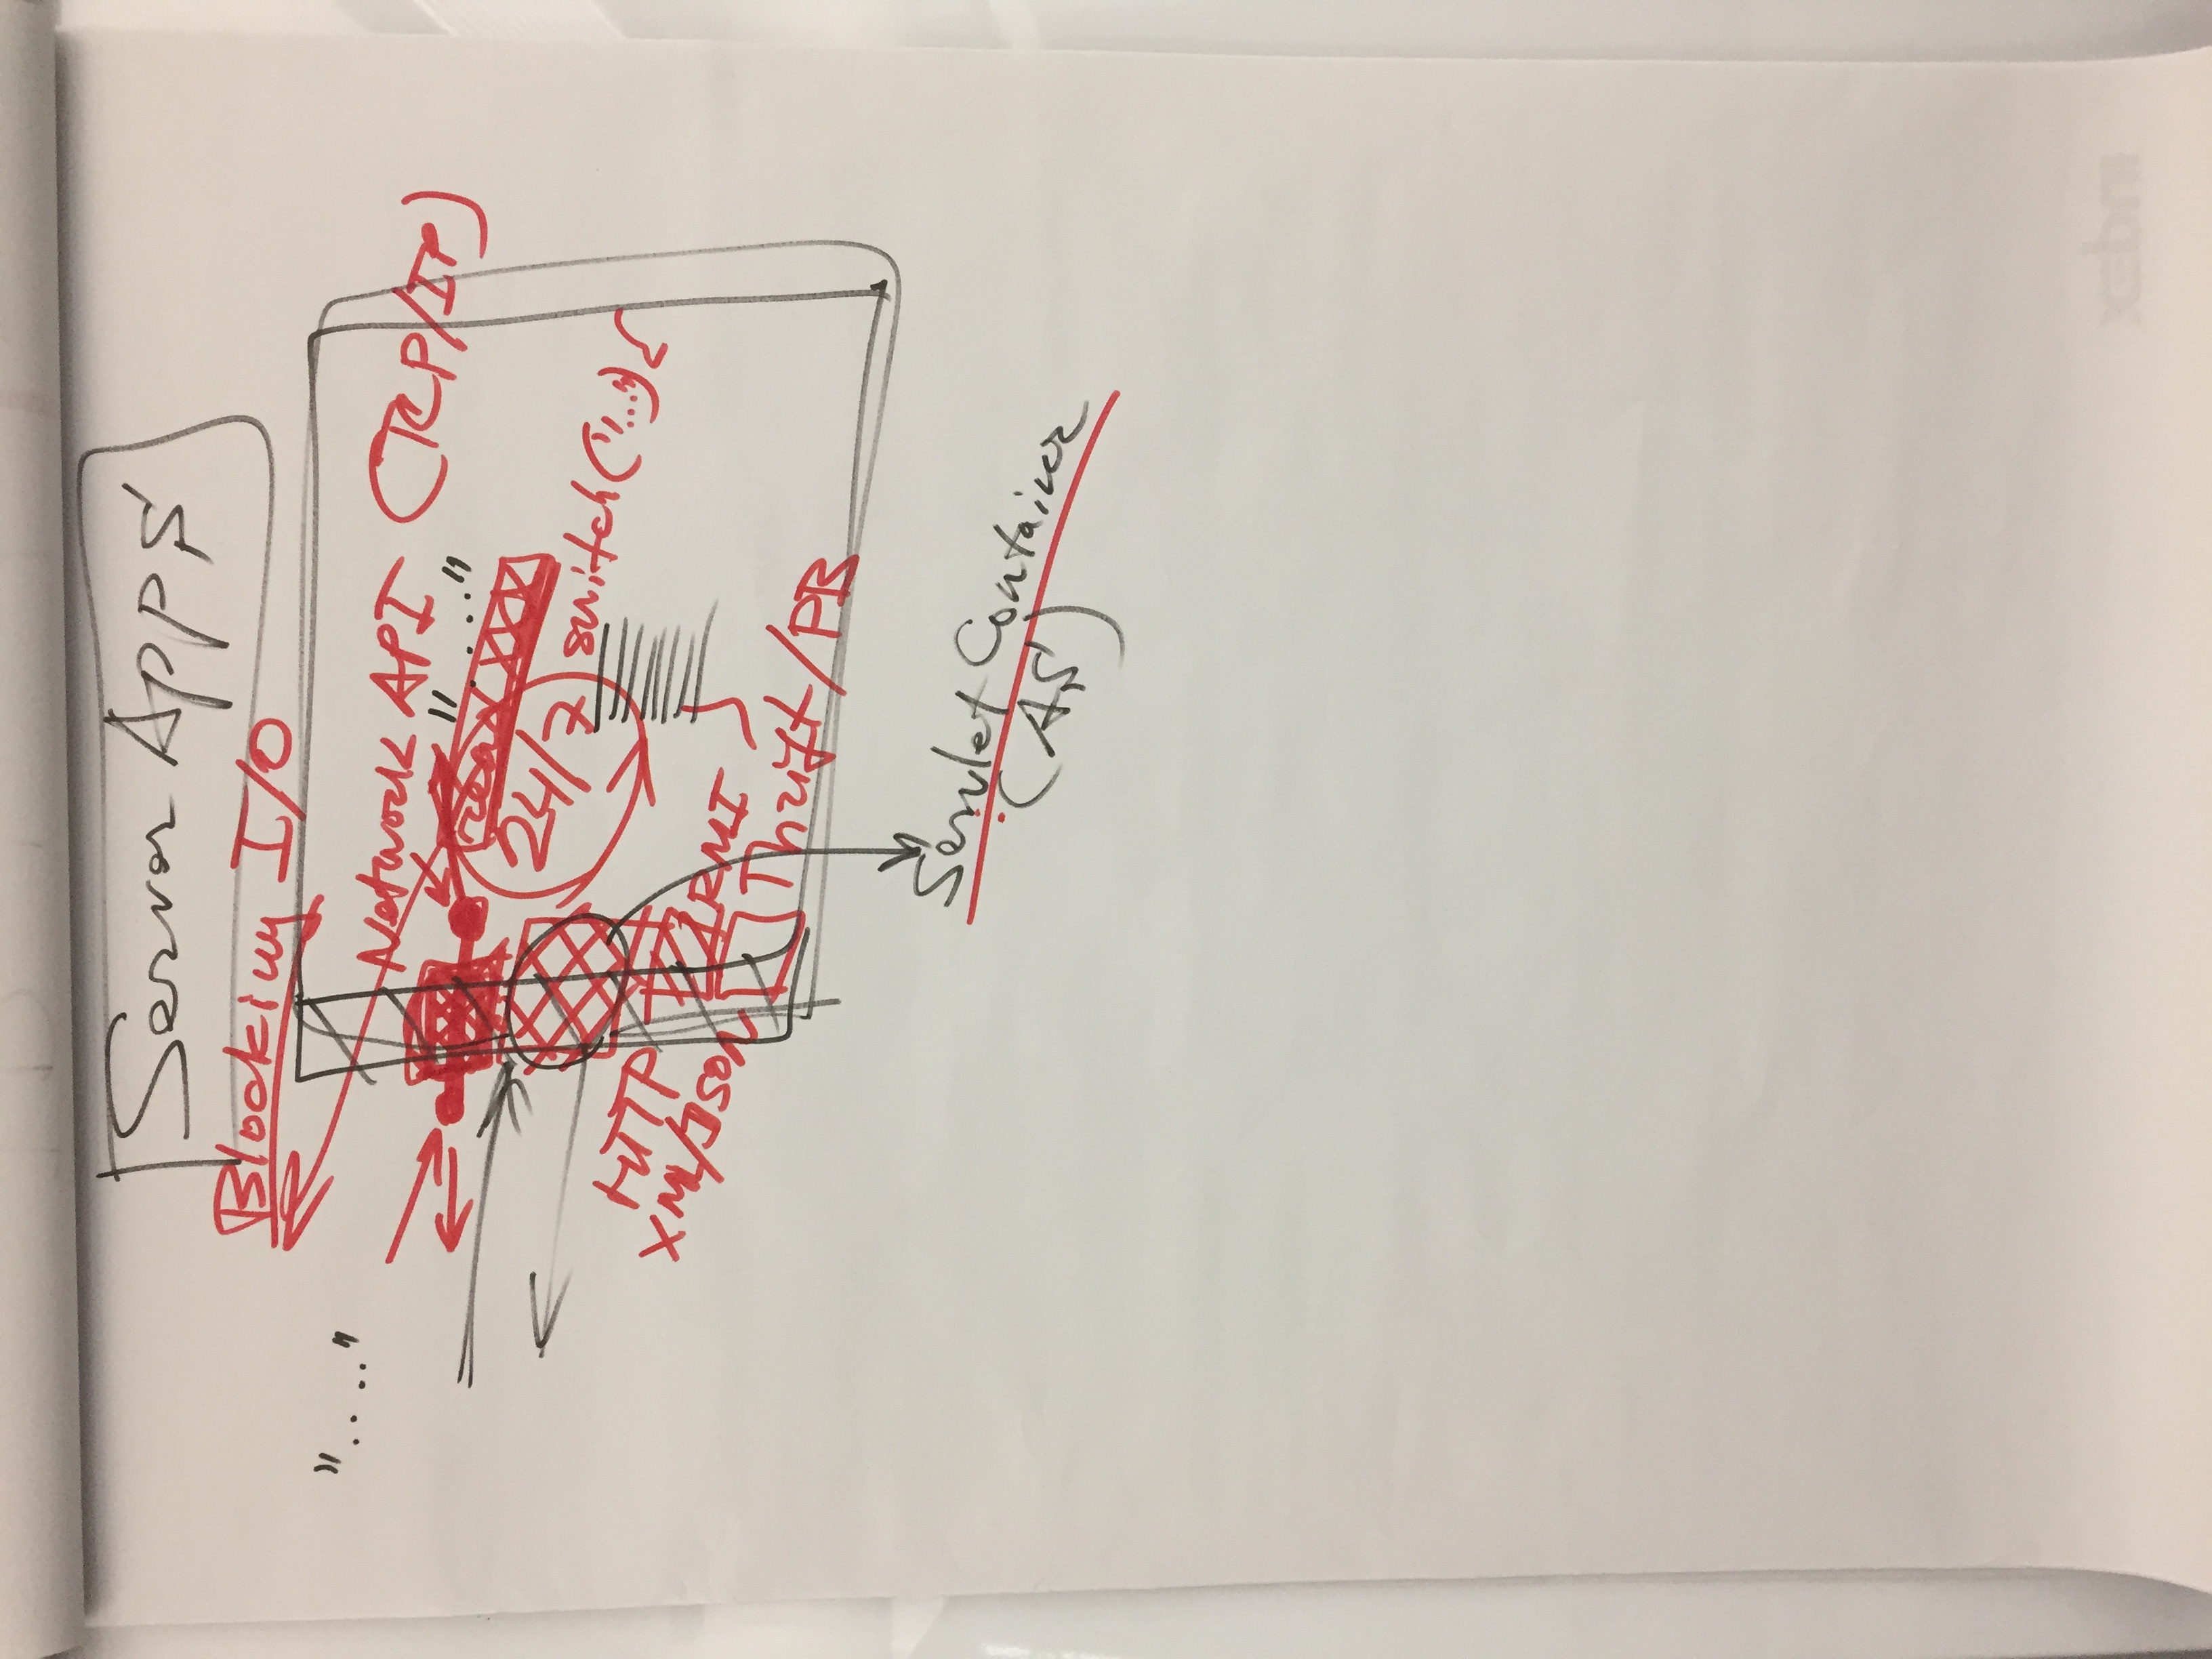 Server Apps
Blocking I/O
"...."
Network API (TCP/IP)
"....."
read
24/7
switch("...") {
}
HTTP
XML/JSON
RMI
Thrift/PB
Servlet Container
(AS)
index